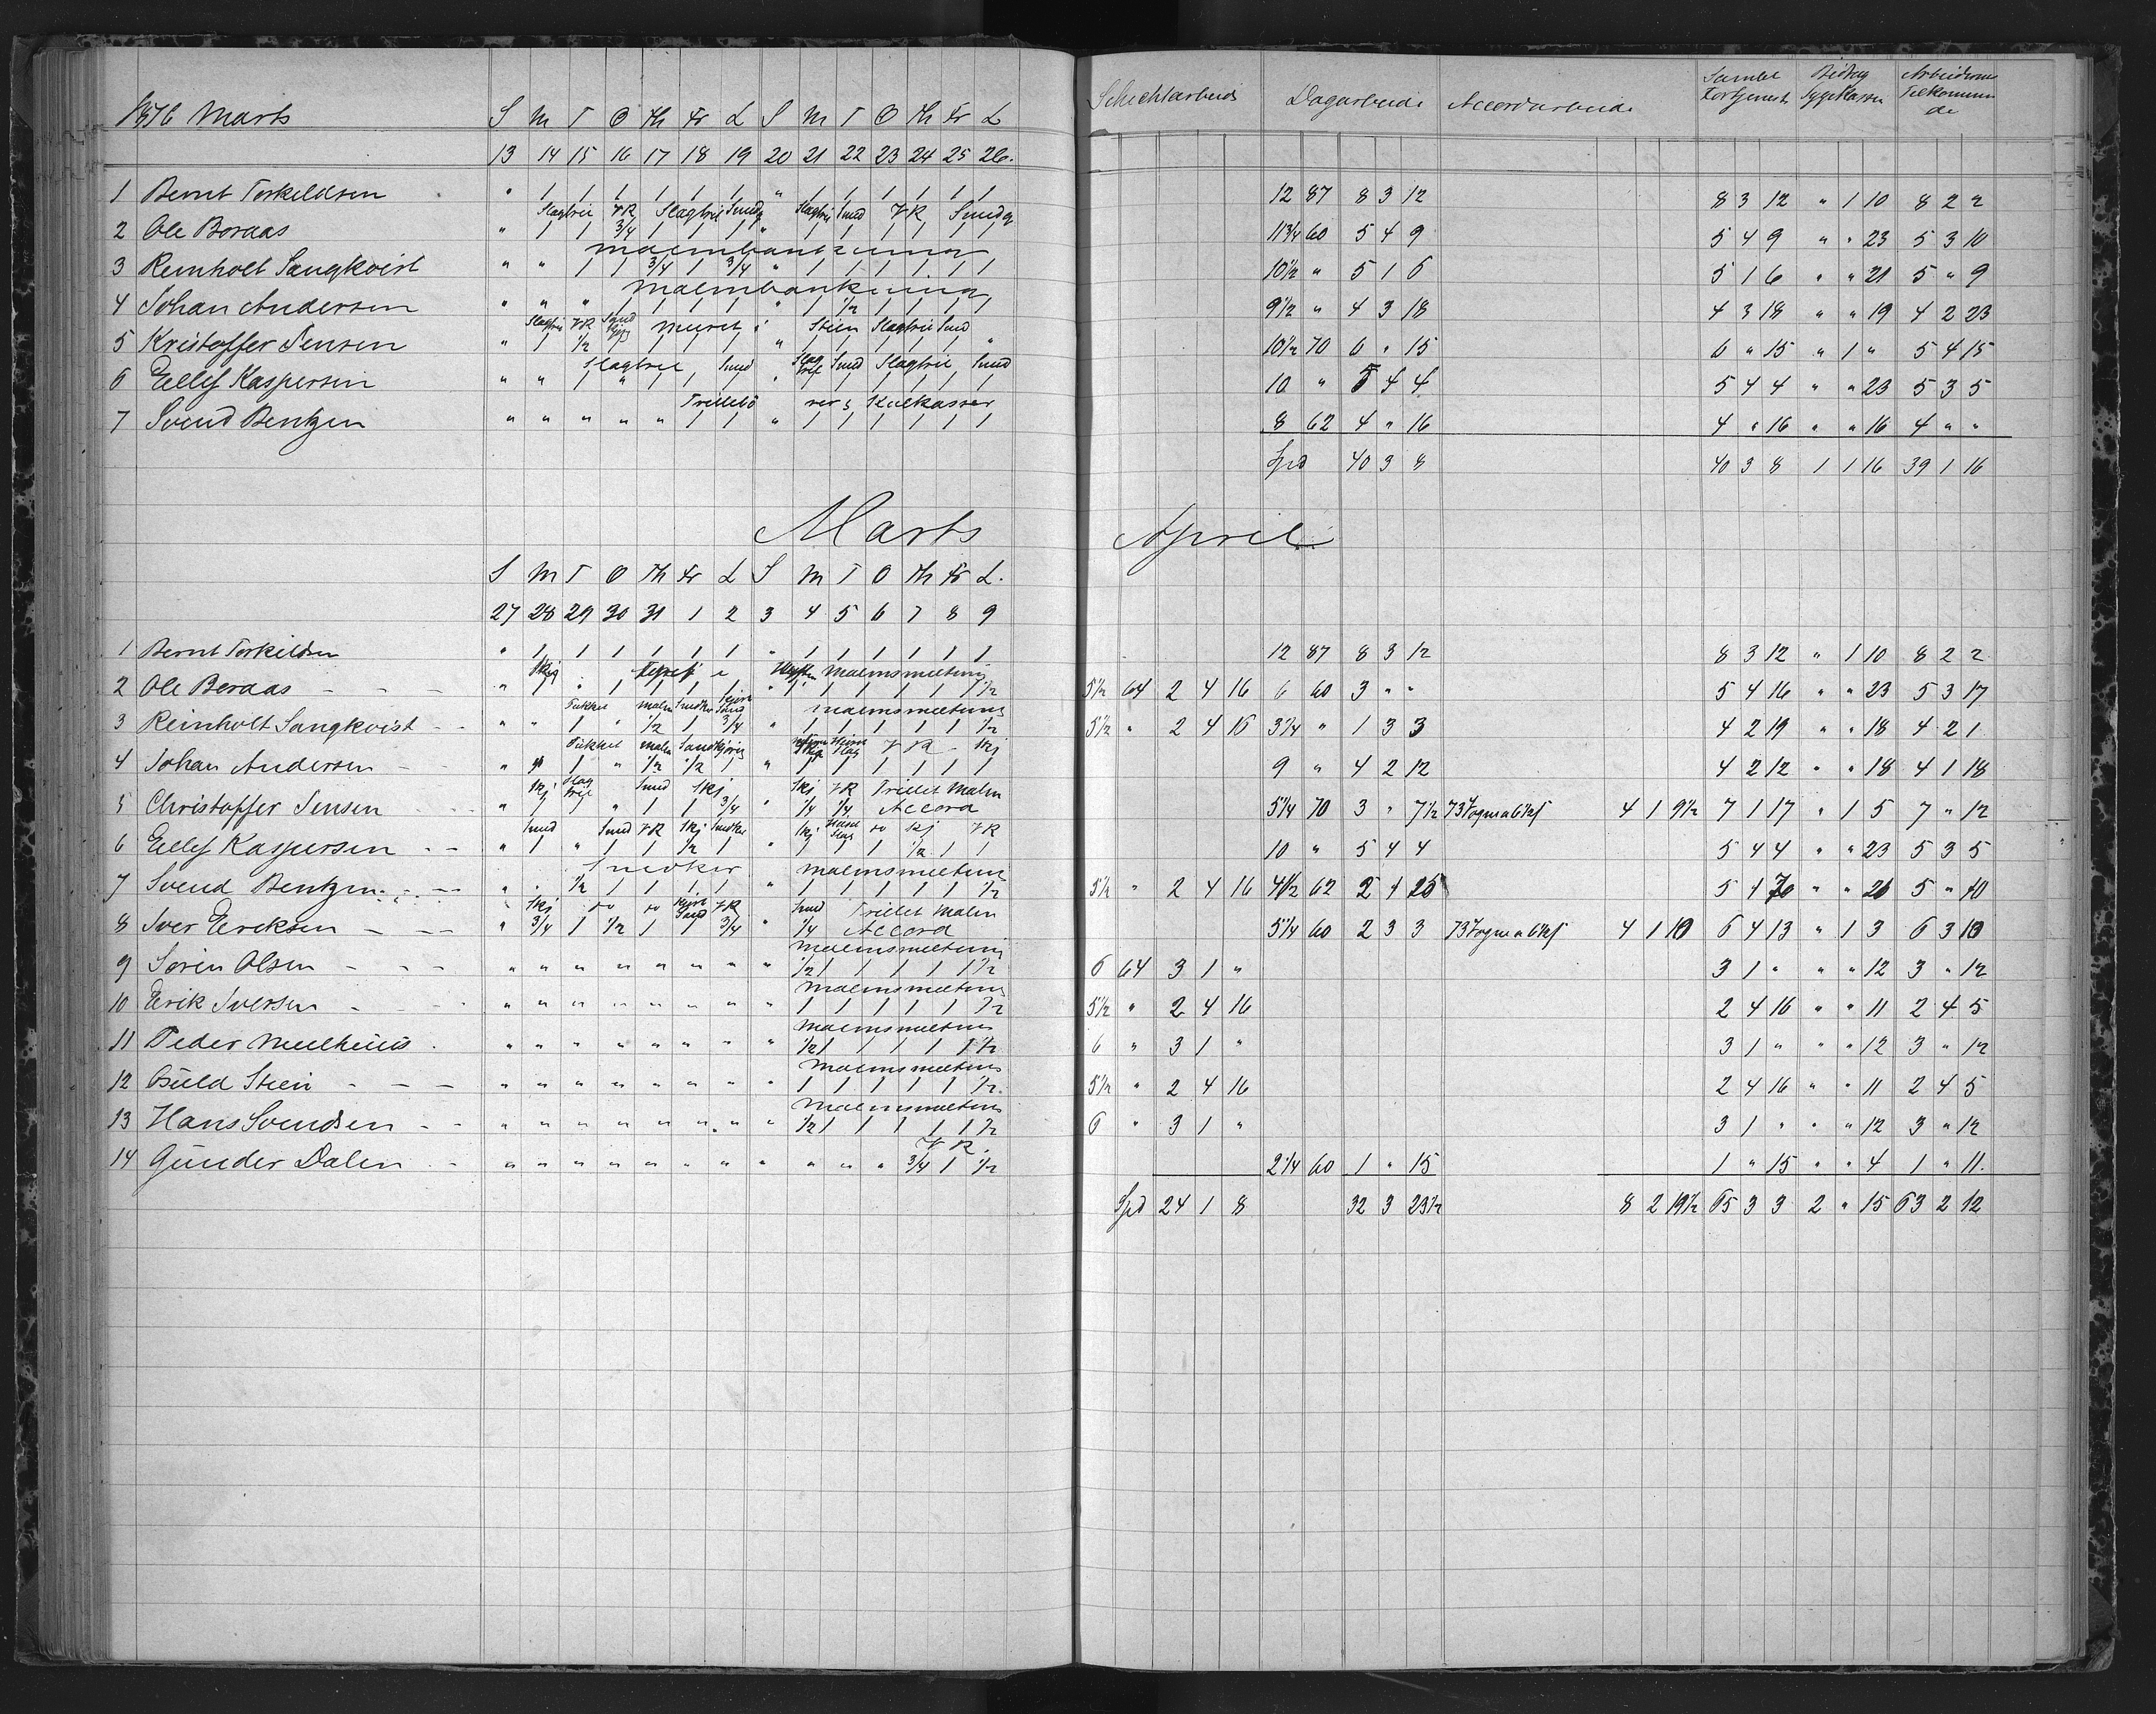 1876 Marts S M T O Th Fr L S M T O Th Fr L Schichtarbeide Dagarbeide Accordarbeide Samlet Fortjeneste Bidrag Sygekassen Arbeiderne Tilkommende
13 14 15 16 17 18 19 20 21 22 23 24 25 26.
1 Bernt Torkildsen " 1 1 1 1 1 1 " 1 1 1 1 1 1 12 87 8 3 12 8 3 12 " 1 10 8 2 2
Slagtril VR Slagtril Smdg Slagtril Smd VR Smdg
2 Ole Boraas " 1 1 3/4 1 1 1 " 1 1 1 1 1 1 11 3/4 60 5 4 9 5 4 9 " " 23 5 3 10
Malmbankning
3 Reinholt Sangkvist " " 1 1 3/4 1 3/4 " 1 1 1 1 1 1 10 1/2 " 5 1 6 5 1 6 " " 21 5 " 9
Malmbankning
4 Johan Andersen " " " 1 1 1 1 " 1 1/2 1 1 1 1 9 1/2 " 4 3 18 4 3 18 " " 19 4 2 23
Slagtril VR Muret i Stien Slagtril Smd
5 Kristoffer Jensen " 1 1/2 1 1 1 1 " 1 1 1 1 1 " 10 1/2 70 6 " 15 6 " 15 " 1 " 5 4 15
Slagtril Smd Slag tril Smd Slagtril Smd
6 Ellef Kaspersen " " 1 " 1 1 1 " 1 1 1 1 1 1 10 " 5 4 4 5 4 4 " " 23 5 3 5
Trillebörer & Kulkasser
7 Svend Bentzen " " " " " 1 1 " 1 1 1 1 1 1 8 62 4 " 16 4 " 16 " " 16 4 " "
Spd 40 3 8 40 3 8 1 1 16 39 1 16
Marts April
S M T O Th Fr L S M T O Th Fr L.
27 28 29 30 31 1 2 3 4 5 6 7 8 9
1 Bernt Torkildsen " 1 1 1 1 1 1 " 1 1 1 1 1 1 12 87 8 3 12 8 3 12 " 1 10 8 2 2
Skj i Hytten Malmsmeltning
2 Ole Boraas " 1 " 1 1 1 1 " 1 1 1 1 1 1/2 5 1/2 64 2 4 16 6 60 3 " " 5 4 16 " " 23 5 3 17
Pukket malm Smdkr Kjört Sand Malmsmeltning
3 Reinholt Sangkvist " " 1 " 1/2 1 3/4 " 1 1 1 1 1 1/2 5 1/2 " 2 4 16 3 1/4 " 1 3 3 4 2 19 " " 18 4 2 1
Pukket malm Sandkjöring VR Skj
4 Johan Andersen 1 " 1/2 1/2 1 " 1 1 1 1 1 1 9 " 4 2 12 4 2 12 " " 18 4 1 18
Skj Slag tril Smd Skj Skj VR Trillet Malm
5 Christoffer Jensen " 1 1 " 1 1 3/4 " 1/4 1/4 Accord 5 1/4 70 3 " 7 1/2 73 Vogn a 6 4 1 9 1/2 7 1 17 " 1 5 7 " 12
Smd Smd VR Skj Smdkr Skj Skj VR
6 Ellef Kaspersen " 1 " 1 1 1/2 1 " 1 1 1 1/2 1 1 10 " 5 4 4 5 4 4 " " 23 5 3 5
Smdker Malmsmeltning
7 Svend Bentzen " " 1/2 1 1 1 1 " 1 1 1 1 1 1/2 5 1/2 " 2 4 16 4 1/2 62 5 " 10
Skj Kjört Sand VR Smd Trillet Malm
8 Iver Eriksen " 3/4 1 1/2 1 1 3/4 " 1/4 Accord 5 1/4 60 2 3 3 73 Vogn a 6 4 1 10 6 4 13 " 1 3 6 3 10
Malmsmeltning
9 Sören Olsen " " " " " " " " 1/2 1 1 1 1 1 1/2 6 64 3 1 " 3 1 " " " 12 3 " 12
Malmsmeltning
10 Erik Iversen " " " " " " " " 1 1 1 1 1 1/2 5 1/2 " 2 4 16 2 4 16 " " 11 2 4 5
Malmsmeltning
11 Peder " " " " " " " " 1/2 1 1 1 1 1 1/2 6 " 3 1 " 3 1 " " " 12 3 " 12
Malmsmeltning
12 Stein " " " " " " " " 1 1 1 1 1 1/2 5 1/2 " 2 4 16 2 4 16 " " 11 2 4 5
Malmsmeltning
13 Hans Svendsen " " " " " " " " 1/2 1 1 1 1 1 1/2 6 " 3 1 " 3 1 " " " 12 3 " 12
VR.
14 Gunder Dalen " " " " " " " " " " " 3/4 1 1/2 2 1/4 60 1 " 15 1 " 15 " " 4 1 " 11.
Spd 24 1 8 32 3 23 1/2 8 2 19 1/2 65 3 3 2 " 15 63 2 12